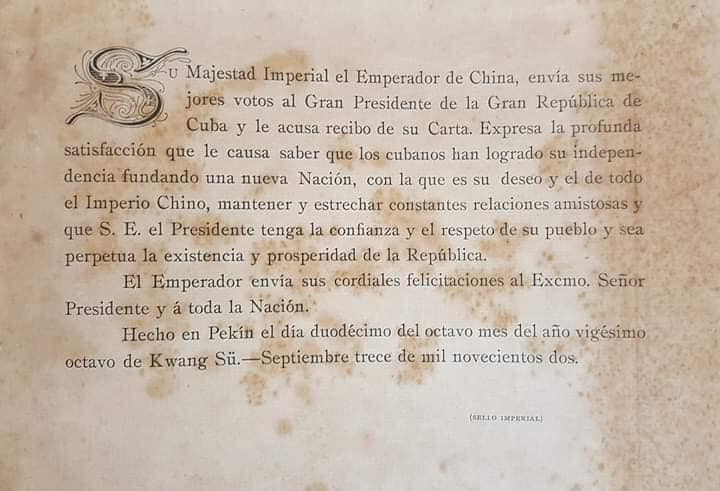 Su Majestad Imperial el Emperador de China, envía sus me-
jores votos al Gran Presidente de la Gran República de
Cuba y le acusa recibo de su Carta. Expresa la profunda
satisfacción que le causa saber que los cubanos han logrado su indepen-
dencia fundando una nueva Nación, con la que es su deseo y el de todo
el Imperio Chino, mantener y estrechar constantes relaciones amistosas y
que S. E. el Presidente tenga la confianza y el respeto de su pueblo y sea
perpetua la existencia y prosperidad de la República.
El Emperador envía sus cordiales felicitaciones al Excmo. Señor
Presidente y á toda la Nación.
Hecho en Pekín el día duodécimo del octavo mes del año vigésimo
octavo de Kwang Sü.—Septiembre trece de mil novecientos dos.
(SELLO IMPERIAL)